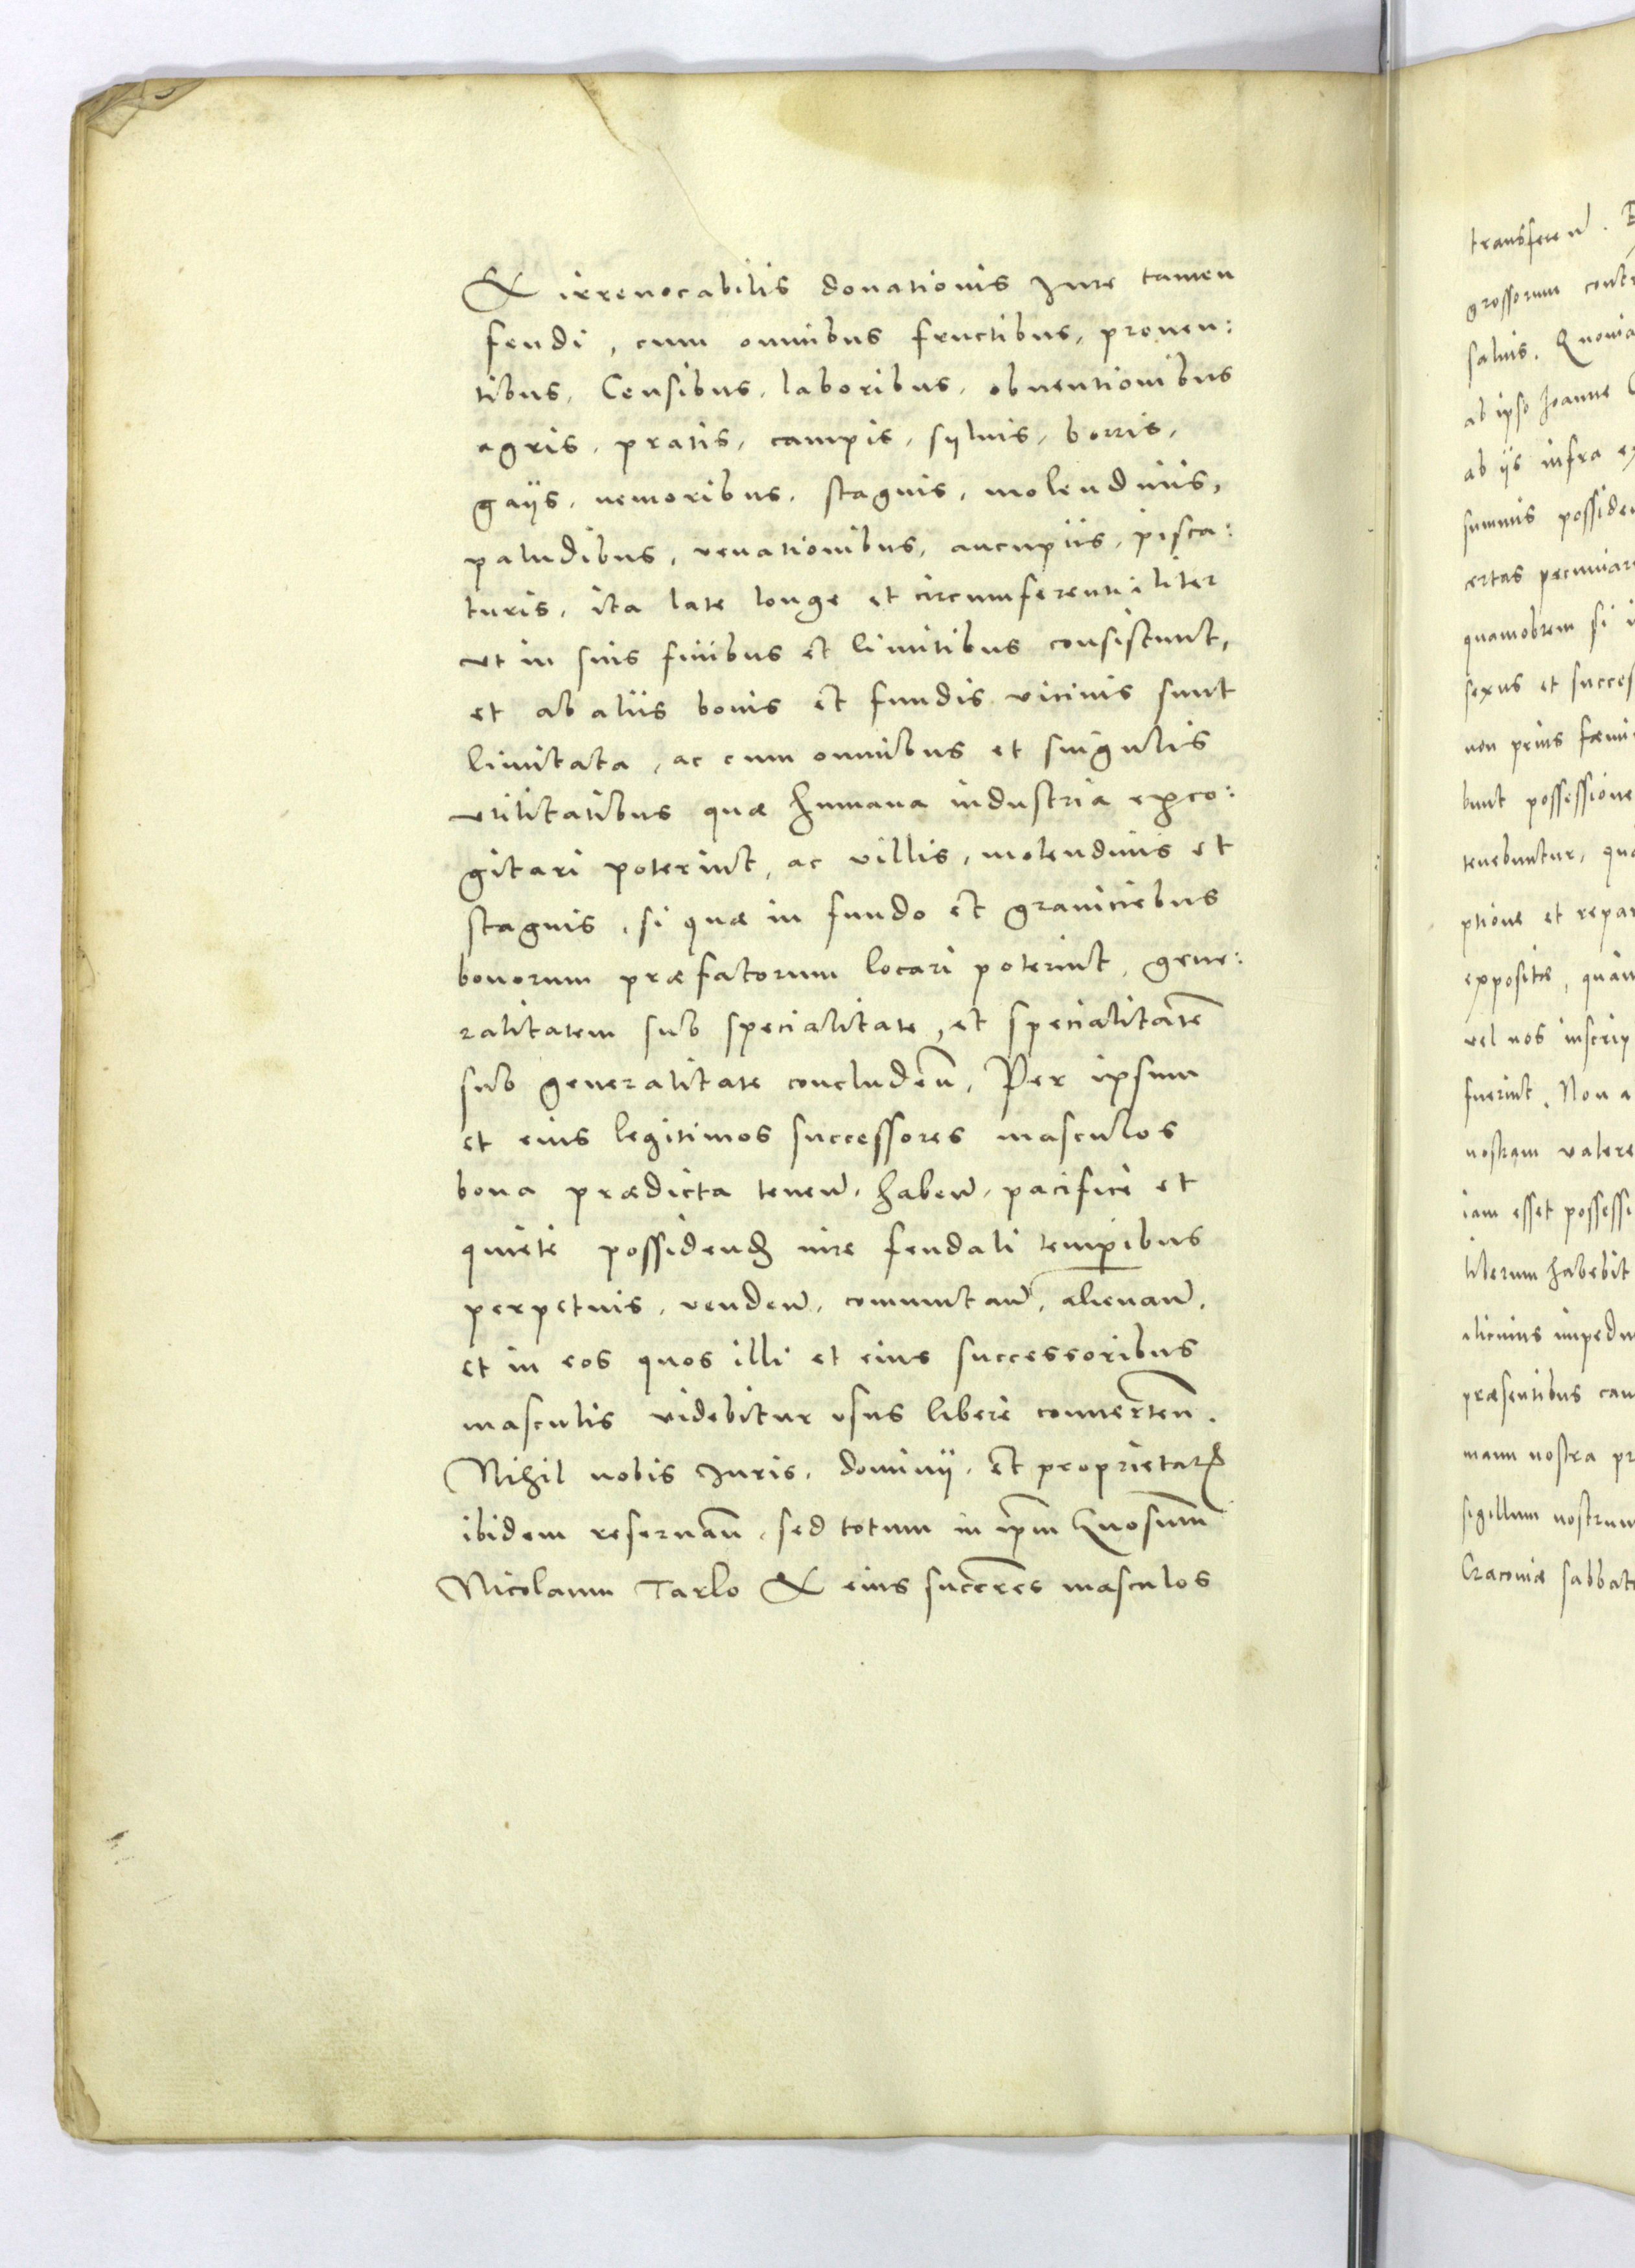 & irreuocabilis donationis Jure tamen
feudi, cum omnibus fructibus, prouen:
tibus, Censibus, laboribus, obuentionibus
agris, pratis, campis, syluis, borris,
gaijs, nemoribus, stagnis, molendinis,
paludibus, venationibus, aucupiis, pisca:
turis, ita late longe et circumferentialiter
vt in suis finibus et limitibus consistunt,
et ab aliis bonis et fundis vicinis sunt
limitata, ac cum omnibus et singulis
vtilitatibus quæ humana industria exco:
gitari poterint, ac villis, molendinis et
stagnis, si quæ in fundo et graniciebus
bonorum præfatorum locari poterint, gene:
ralitatem sub specialitate, et specialitatē
sub generalitate concludeñ, Per ipsum
et eius legitimos successores masculos
bona prædicta teneñ, habeñ, pacificè et
quietè possidenđ iure feudali temp̄ibus
perpetuis, vendeñ, comutañ, alienañ,
et in eos quos illi et eius successoribus
masculis videbitur vsus liberè conuerteñ.
Nihil nobis Juris, dominij, et proprietatꝭ
ibidem reseruañ, sed totum in ip̄m Gnosum̄
Nicolaum Tarlo & eius succ̄res masculos
transfereñ.
grossorum
saluis.
ab ipso Joanne
ab ijs infra
summis
certas
quamobrem si
sexus et
non prius
bunt
tenebuntur,
ptione et
expositæ,
vel nos
fuerint. Non
nostram valere
iam esset
liberum habebit
alicuius
præsentibus
manu nostra
sigillum
Cracouiæ